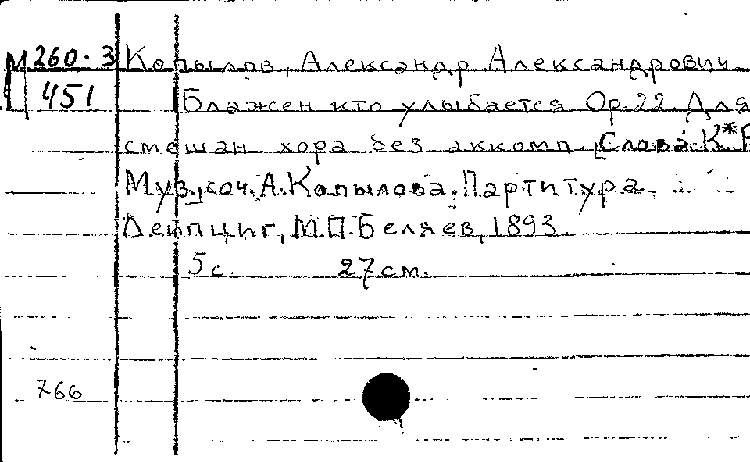 М 260-3 Копылов, Александр Александрович
451 Блажен кто улыбается Ор.22 Для
смешан хора без аккомп [Слова К*Р
Муз. соч. А. Копылова. Партитура.
Лейпциг, М.П. Беляев, 1893.
5 с. 27 см.
766